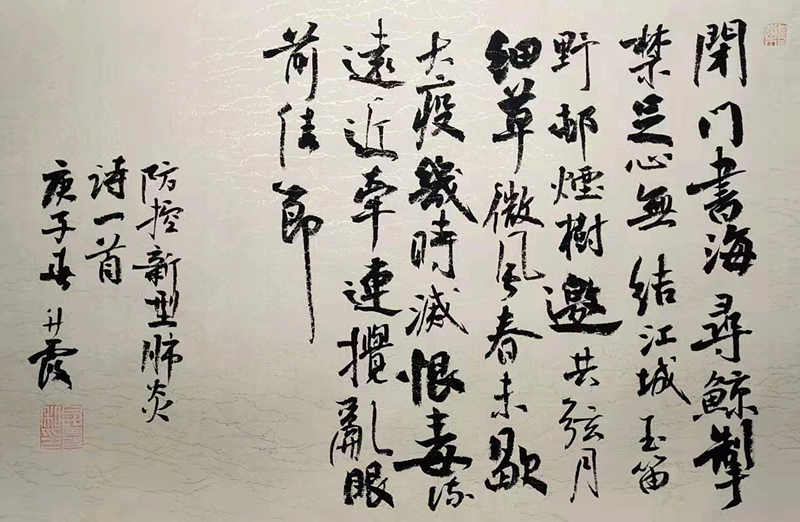 閑門書海尋鯨掣
禁足心無結江城玉笛
野邨煙樹邀共弦月
細草微風春未歇
大疫幾時滅恨毒流
遠近牽連攪亂眼
前佳節
防控新型肺炎
詩一首
庚子春升霞